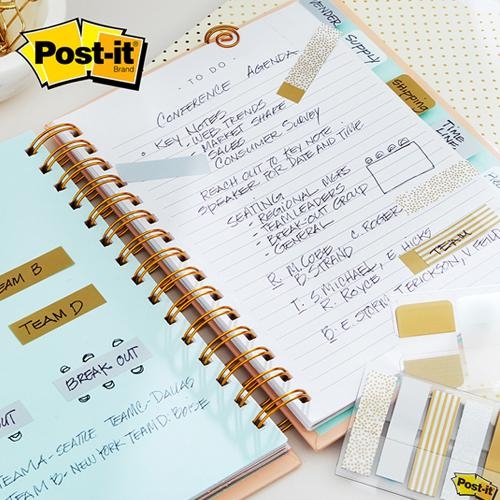 Post-it
Brand
VENDER
SUPPLY
Shipping
TIME
LINE
TO DO
CONFERENCE AGENDA
KEY NOTES
- WEB TRENDS
- MARKET SHARE
- SALES
- CONSUMER SURVEY
REACH OUT TO KEY NOTE
SPEAKER FOR DATE AND TIME
SEATING
- REGIONAL MGRS
- TEAM LEADERS
- BREAK-OUT GROUP
- GENERAL
TEAM
R. M. COBE, C. ROGER
B. STRAND
I. S. MICHAEL, E. HICKS
R. ROYCE,
B. E. STORM, T. ERICKSON, V. FELD
TEAM B
TEAM D
BREAK OUT
OUT
TEAM A - SEATTLE TEAM C - DALLAS
TEAM B - NEW YORK - TEAM D: BOISE
Post-it